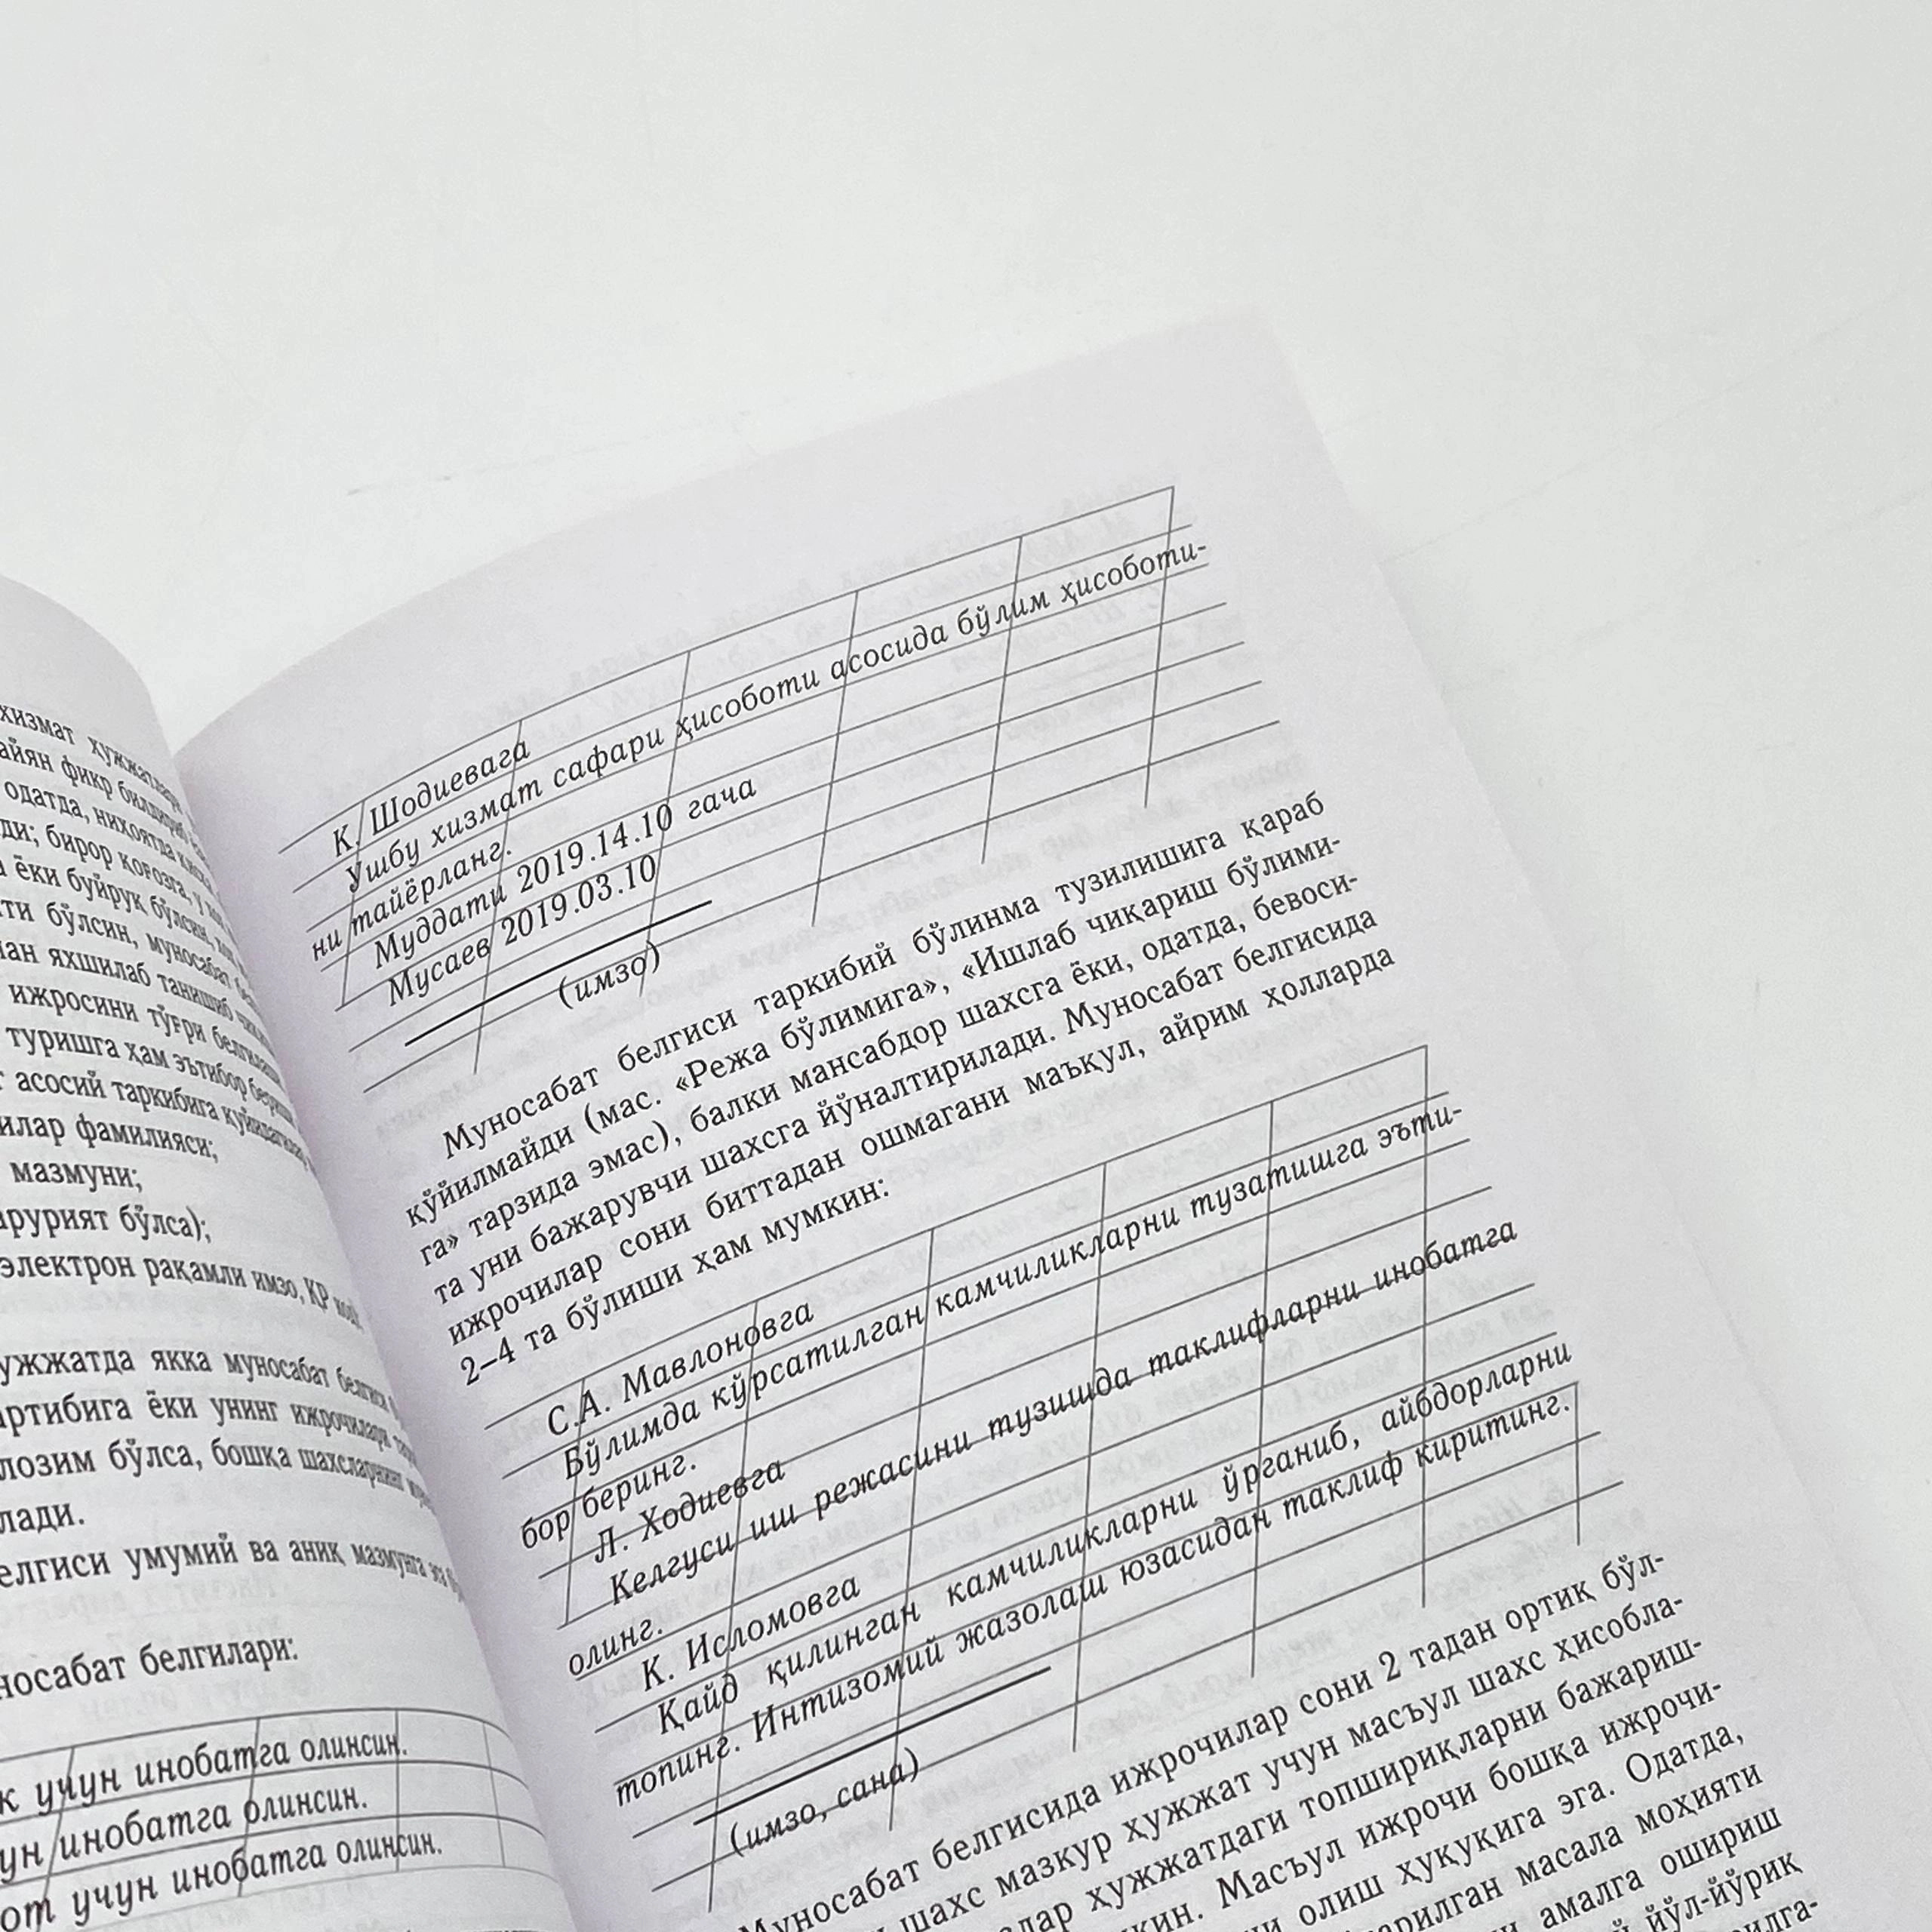 хизмат ҳужжатлари
айян фикр билдириб
одатда, ниҳоятда қисқа
ди; бирор қоғозга, у
ёки буйруқ бўлсин,
ти бўлсин, муносабат
ан яхшилаб танишиб
ижросини тўғри белгилаш
туришга ҳам эътибор бериши
асосий таркибига қуйидагилар
илар фамилияси;
мазмуни;
арурият бўлса);
электрон рақамли имзо, ҚР
ужжатда якка муносабат белгиси
артибига ёки унинг ижрочилари
лозим бўлса, бошқа шахсларнинг
лади.
елгиси умумий ва аниқ мазмунга эга
носабат белгилари:
к учун инобатга олинсин.
ун инобатга олинсин.
от учун инобатга олинсин.
К. Шодиевага
Ушбу хизмат сафари ҳисоботи асосида бўлим ҳисоботи-
ни тайёрланг.
Муддати 2019.14.10 гача
Мусаев 2019.03.10
(имзо)
Муносабат белгиси таркибий бўлинма тузилишига қараб
қўйилмайди (мас. «Режа бўлимига», «Ишлаб чиқариш бўлими-
га» тарзида эмас), балки мансабдор шахсга ёки, одатда, бевоси-
та уни бажарувчи шахсга йўналтирилади. Муносабат белгисида
ижрочилар сони биттадан ошмагани маъқул, айрим ҳолларда
2–4 та бўлиши ҳам мумкин:
С.А. Мавлоновга
Бўлимда кўрсатилган камчиликларни тузатишга эъти-
бор беринг.
Л. Ходиевга
Келгуси иш режасини тузишда таклифларни инобатга
олинг.
К. Исломовга
Қайд қилинган камчиликларни ўрганиб, айбдорларни
топинг. Интизомий жазолаш юзасидан таклиф киритинг.
(имзо, сана)
Муносабат белгисида ижрочилар сони 2 тадан ортиқ бўл-
шахс мазкур ҳужжат учун масъул шахс ҳисобла-
лар ҳужжатдаги топшириқларни бажариш-
кин. Масъул ижрочи бошқа ижрочи-
ни олиш ҳуқуқига эга. Одатда,
арилган масала моҳияти
амалга ошириш
йўл-йўриқ